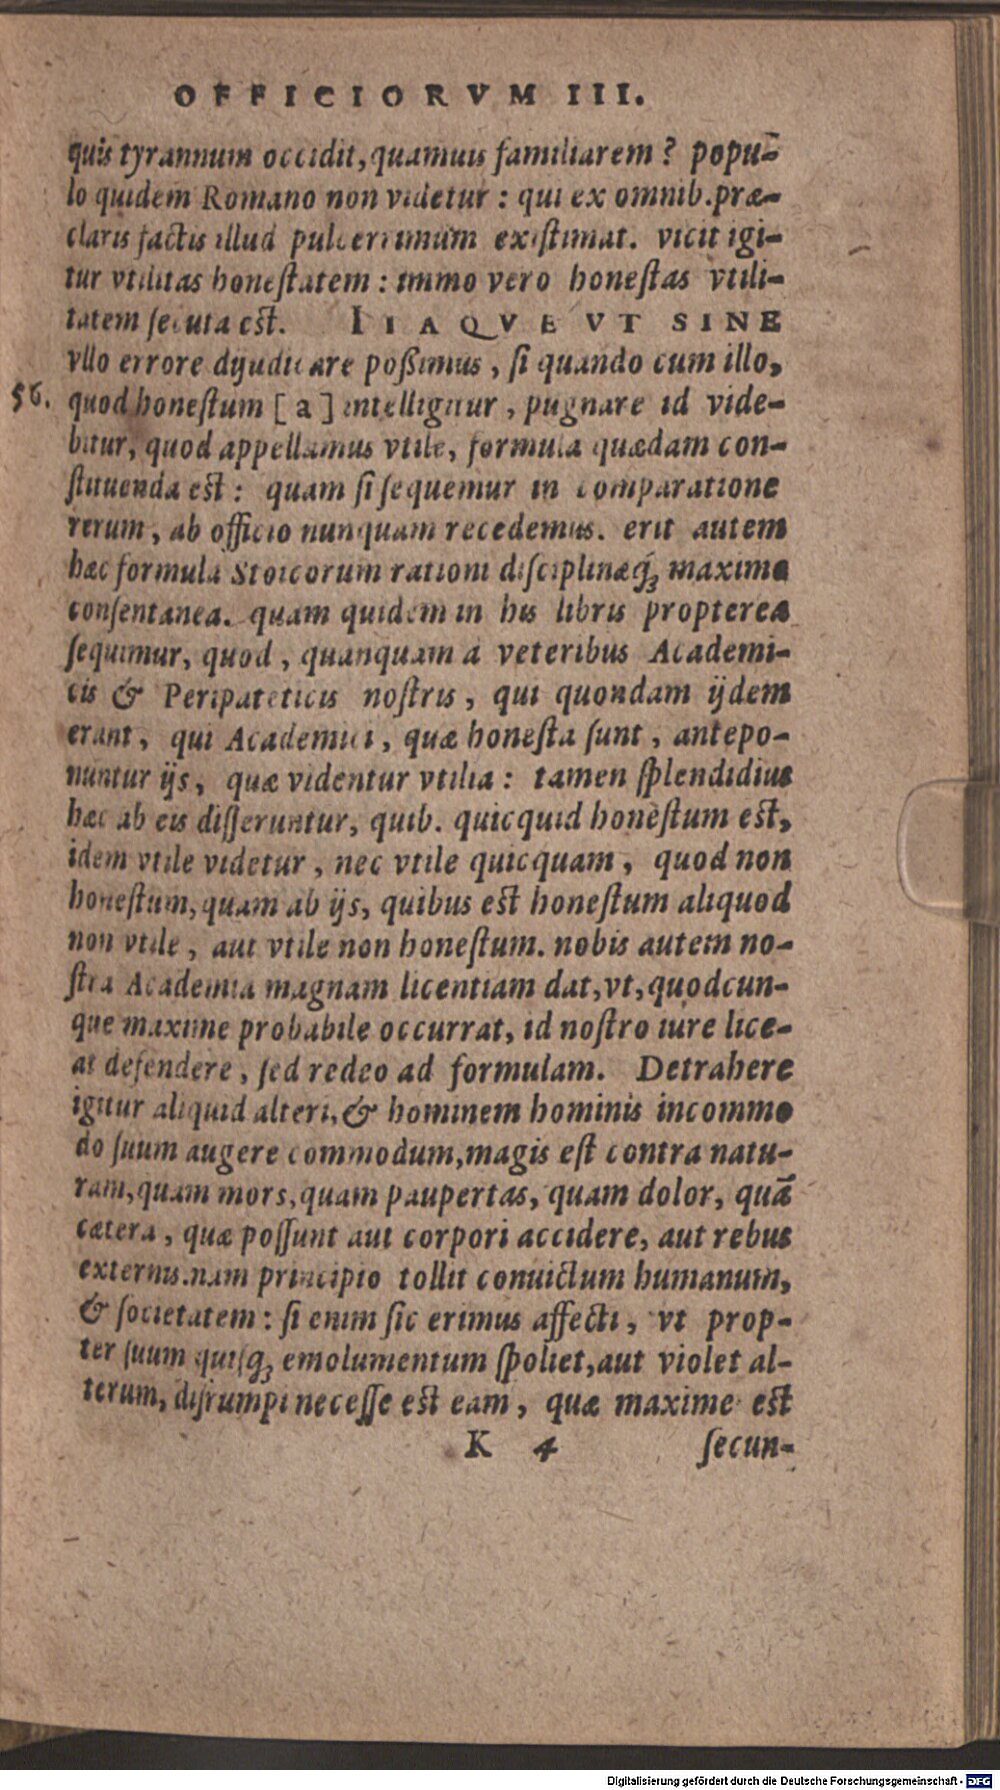 OFFICIORVM III.
quis tyrannum occidit, quamuis familiarem? popu-
lo quidem Romano non videtur: qui ex omnib. præ-
claris factis illud pulcerrimum existimat. vicit igi-
tur vtilitas honestatem: immo vero honestas vtili-
tatem secuta est. ITAQVE VT SINE
vllo errore dijudicare poßimus, si quando cum illo,
56. quod honestum [a] intelligitur, pugnare id vide-
bitur, quod appellamus vtile, formula quædam con-
stituenda est: quam si sequemur in comparatione
rerum, ab officio nunquam recedemus. erit autem
hæc formula Stoicorum rationi disciplinæq́ꝫ maxime
consentanea. quam quidem in his libris propterea
sequimur, quod, quanquam a veteribus Academi-
cis & Peripateticis nostris, qui quondam ijdem
erant, qui Academici, quæ honesta sunt, antepo-
nuntur ijs, quæ videntur vtilia: tamen splendidius
hæc ab eis disseruntur, quib. quicquid honèstum est,
idem vtile videtur, nec vtile quicquam, quod non
honestum, quam ab ijs, quibus est honestum aliquod
non vtile, aut vtile non honestum. nobis autem no-
stra Academia magnam licentiam dat, vt, quodcun-
que maxime probabile occurrat, id nostro iure lice-
at defendere, sed redeo ad formulam. Detrahere
igitur aliquid alteri, & hominem hominis incommo
do suum augere commodum, magis est contra natu-
ram, quam mors, quam paupertas, quam dolor, quã
cætera, quæ possunt aut corpori accidere, aut rebus
externis. nam principio tollit conuictum humanum,
& societatem: si enim sic erimus affecti, vt prop-
ter suum quisq́ꝫ emolumentum spoliet, aut violet al-
terum, disrumpi necesse est eam, quæ maxime est
K 4 secun-
Digitalisierung gefördert durch die Deutsche Forschungsgemeinschaft - DFG